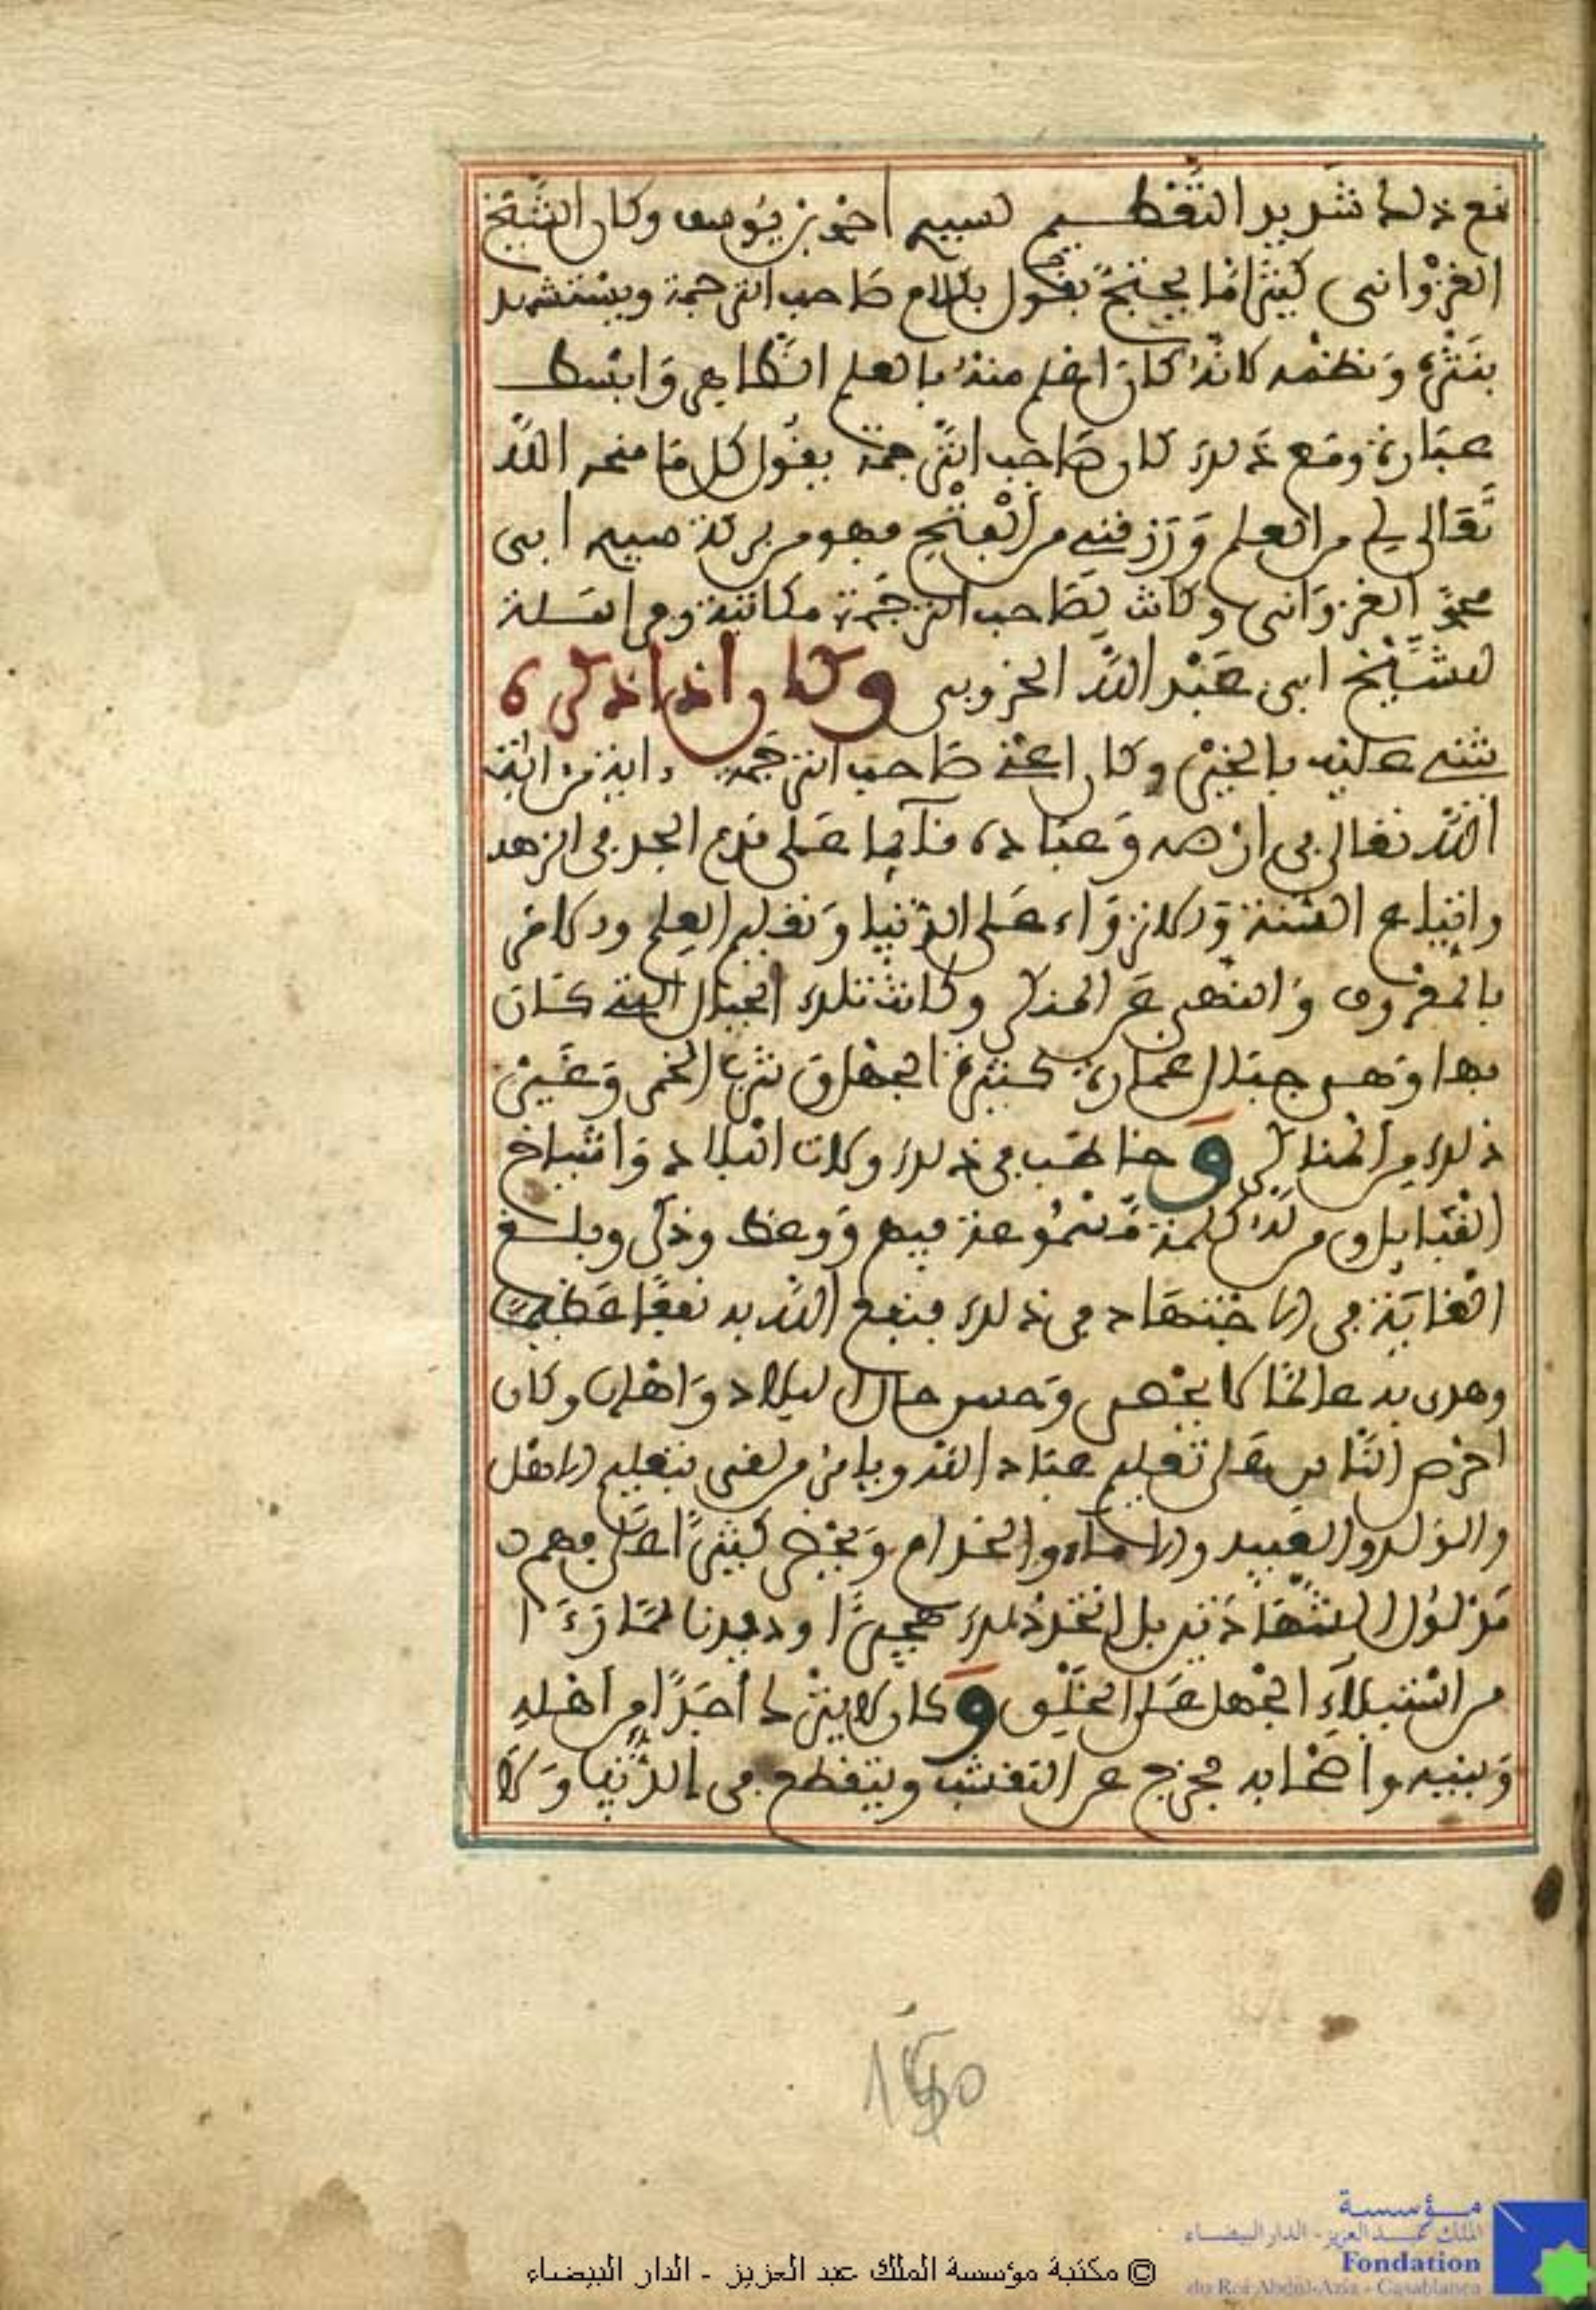 مع ذلك شديد التعظيم لسيدي احمد بن يوسف وكان الشيخ
الغزواني كثيرا ما يحتج بقول بكلام صاحب الترجمة ويستشهد
بنثره ونظمه لانه كان اعلم منه بالعلم الظاهر وابسط
عبارة ومع ذلك كان صاحب الترجمة يقول كل ما منحه الله
تعالى لي من العلم ورزقني من الفتح فهو من بركة سيدي ابي
محمد الغزواني وكانت لصاحب الترجمة مكاتبة ومراسلة
للشيخ ابي عبد الله الخروبي وكان اذا ذكره
يثني عليه بالخير وكان اعني صاحب الترجمة داية من اية
الله تعالى في ارضه وعباده قائما على قدم الجد في الزهد
واتباع السنة والازواء على الدنيا وتعليم العلم والامر
بالمعروف والنهي عن المنكر وكانت تلك الجبال التي كان
بها وهي جبال غمارة كثيرة الجهل وشرب الخمر وغير
ذلك من المناكر وخاطب في ذلك ولات البلاد واشياخ
القبايل ومن له كلمة مسموعة فيهم ووعظ وذكر وبلغ
الغاية في الاجتهاد في ذلك فنفع الله به نفعا عظيما
وهدى به عالما لا يحصى وحسن حال البلاد واهلها وكان
احرص الناس على تعليم عباد الله ويامر من لقي بتعليم الاهل
والولد والعبيد والاماء والخدام ويحرض كثيرا على فهم
مدلول الشهادة بل اتخذ ذلك هجيرا وديدنا لما رءا
من استيلاء الجهل على الخلق وكان لا يترك احدا من اهله
وبنيه واصحابه يخرج عن التقشف وينقطع في الدنيا ولا
150
© مكتبة مؤسسة الملك عبد العزيز - الدار البيضاء
مؤسسة
الملك عبد العزيز - الدار البيضاء
Fondation
du Roi Abdul-Aziz - Casablanca